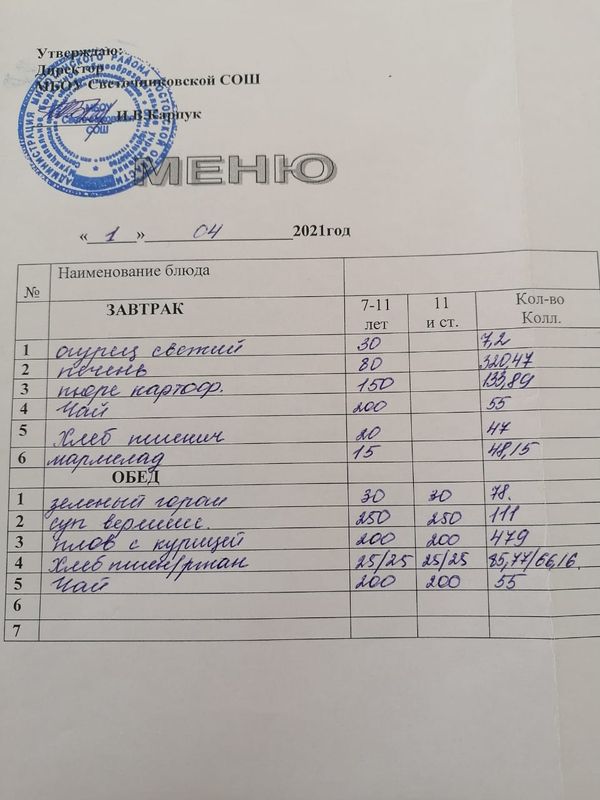 Утверждаю:
Директор
МБОУ Светочниковской СОШ
И.В.Карпук
МБОУ
СОШ
МЕНЮ
« 1 » 04 2021год
№ Наименование блюда
ЗАВТРАК 7-11 лет 11 и ст. Кол-во Колл.
1 огурец свежий 30 7,2
2 печень 80 320,47
3 пюре картоф. 150 133,89
4 Чай 200 55
5 Хлеб пшенич 20 47
6 мармелад 15 48,15
ОБЕД
1 зеленый горош 30 30 78.
2 суп вермиш. 250 250 111
3 плов с курицей 200 200 479
4 Хлеб пшен/ржан 25/25 25/25 85,77/66,16.
5 Чай 200 200 55
6
7